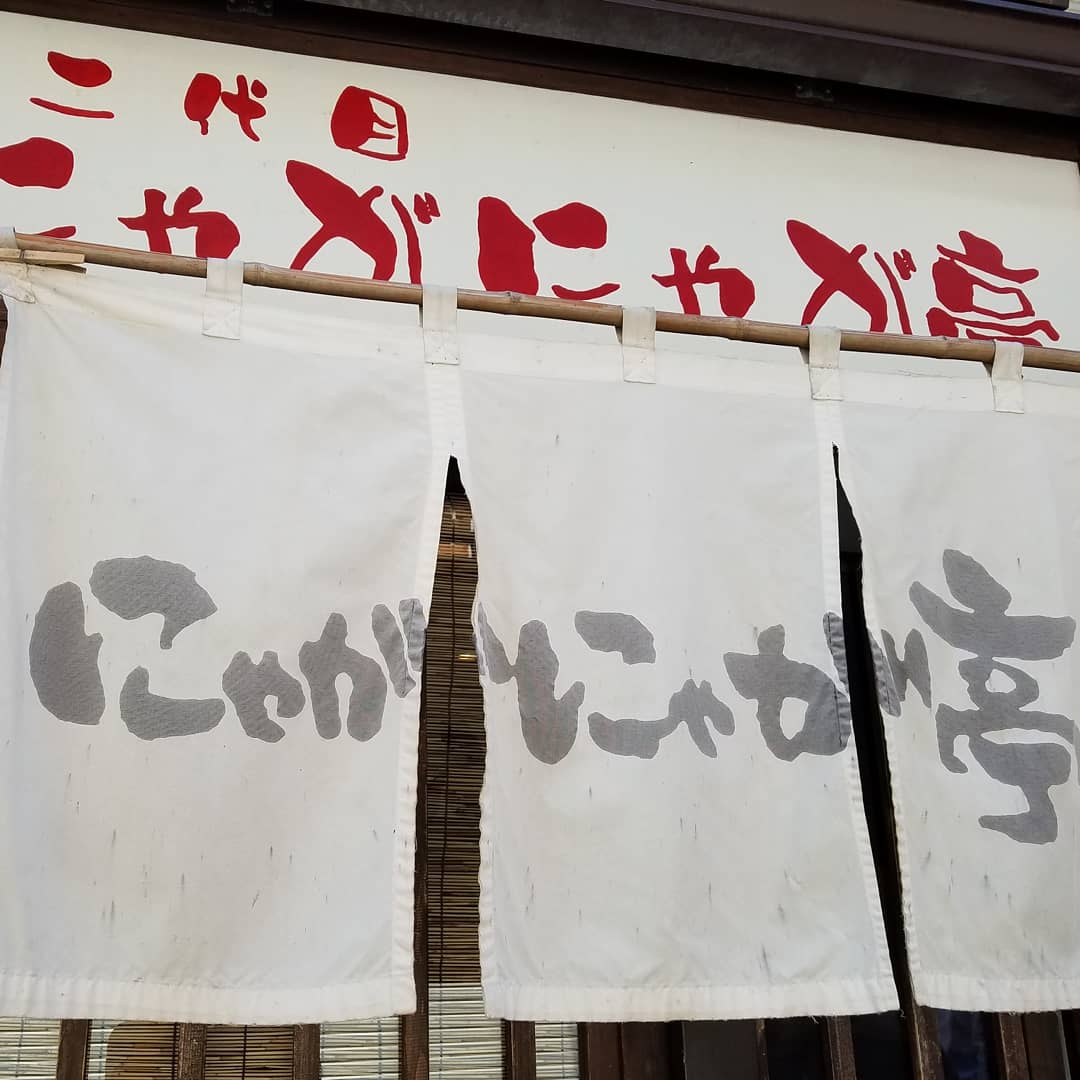 二代目
にゃがにゃが亭
にゃがにゃが亭